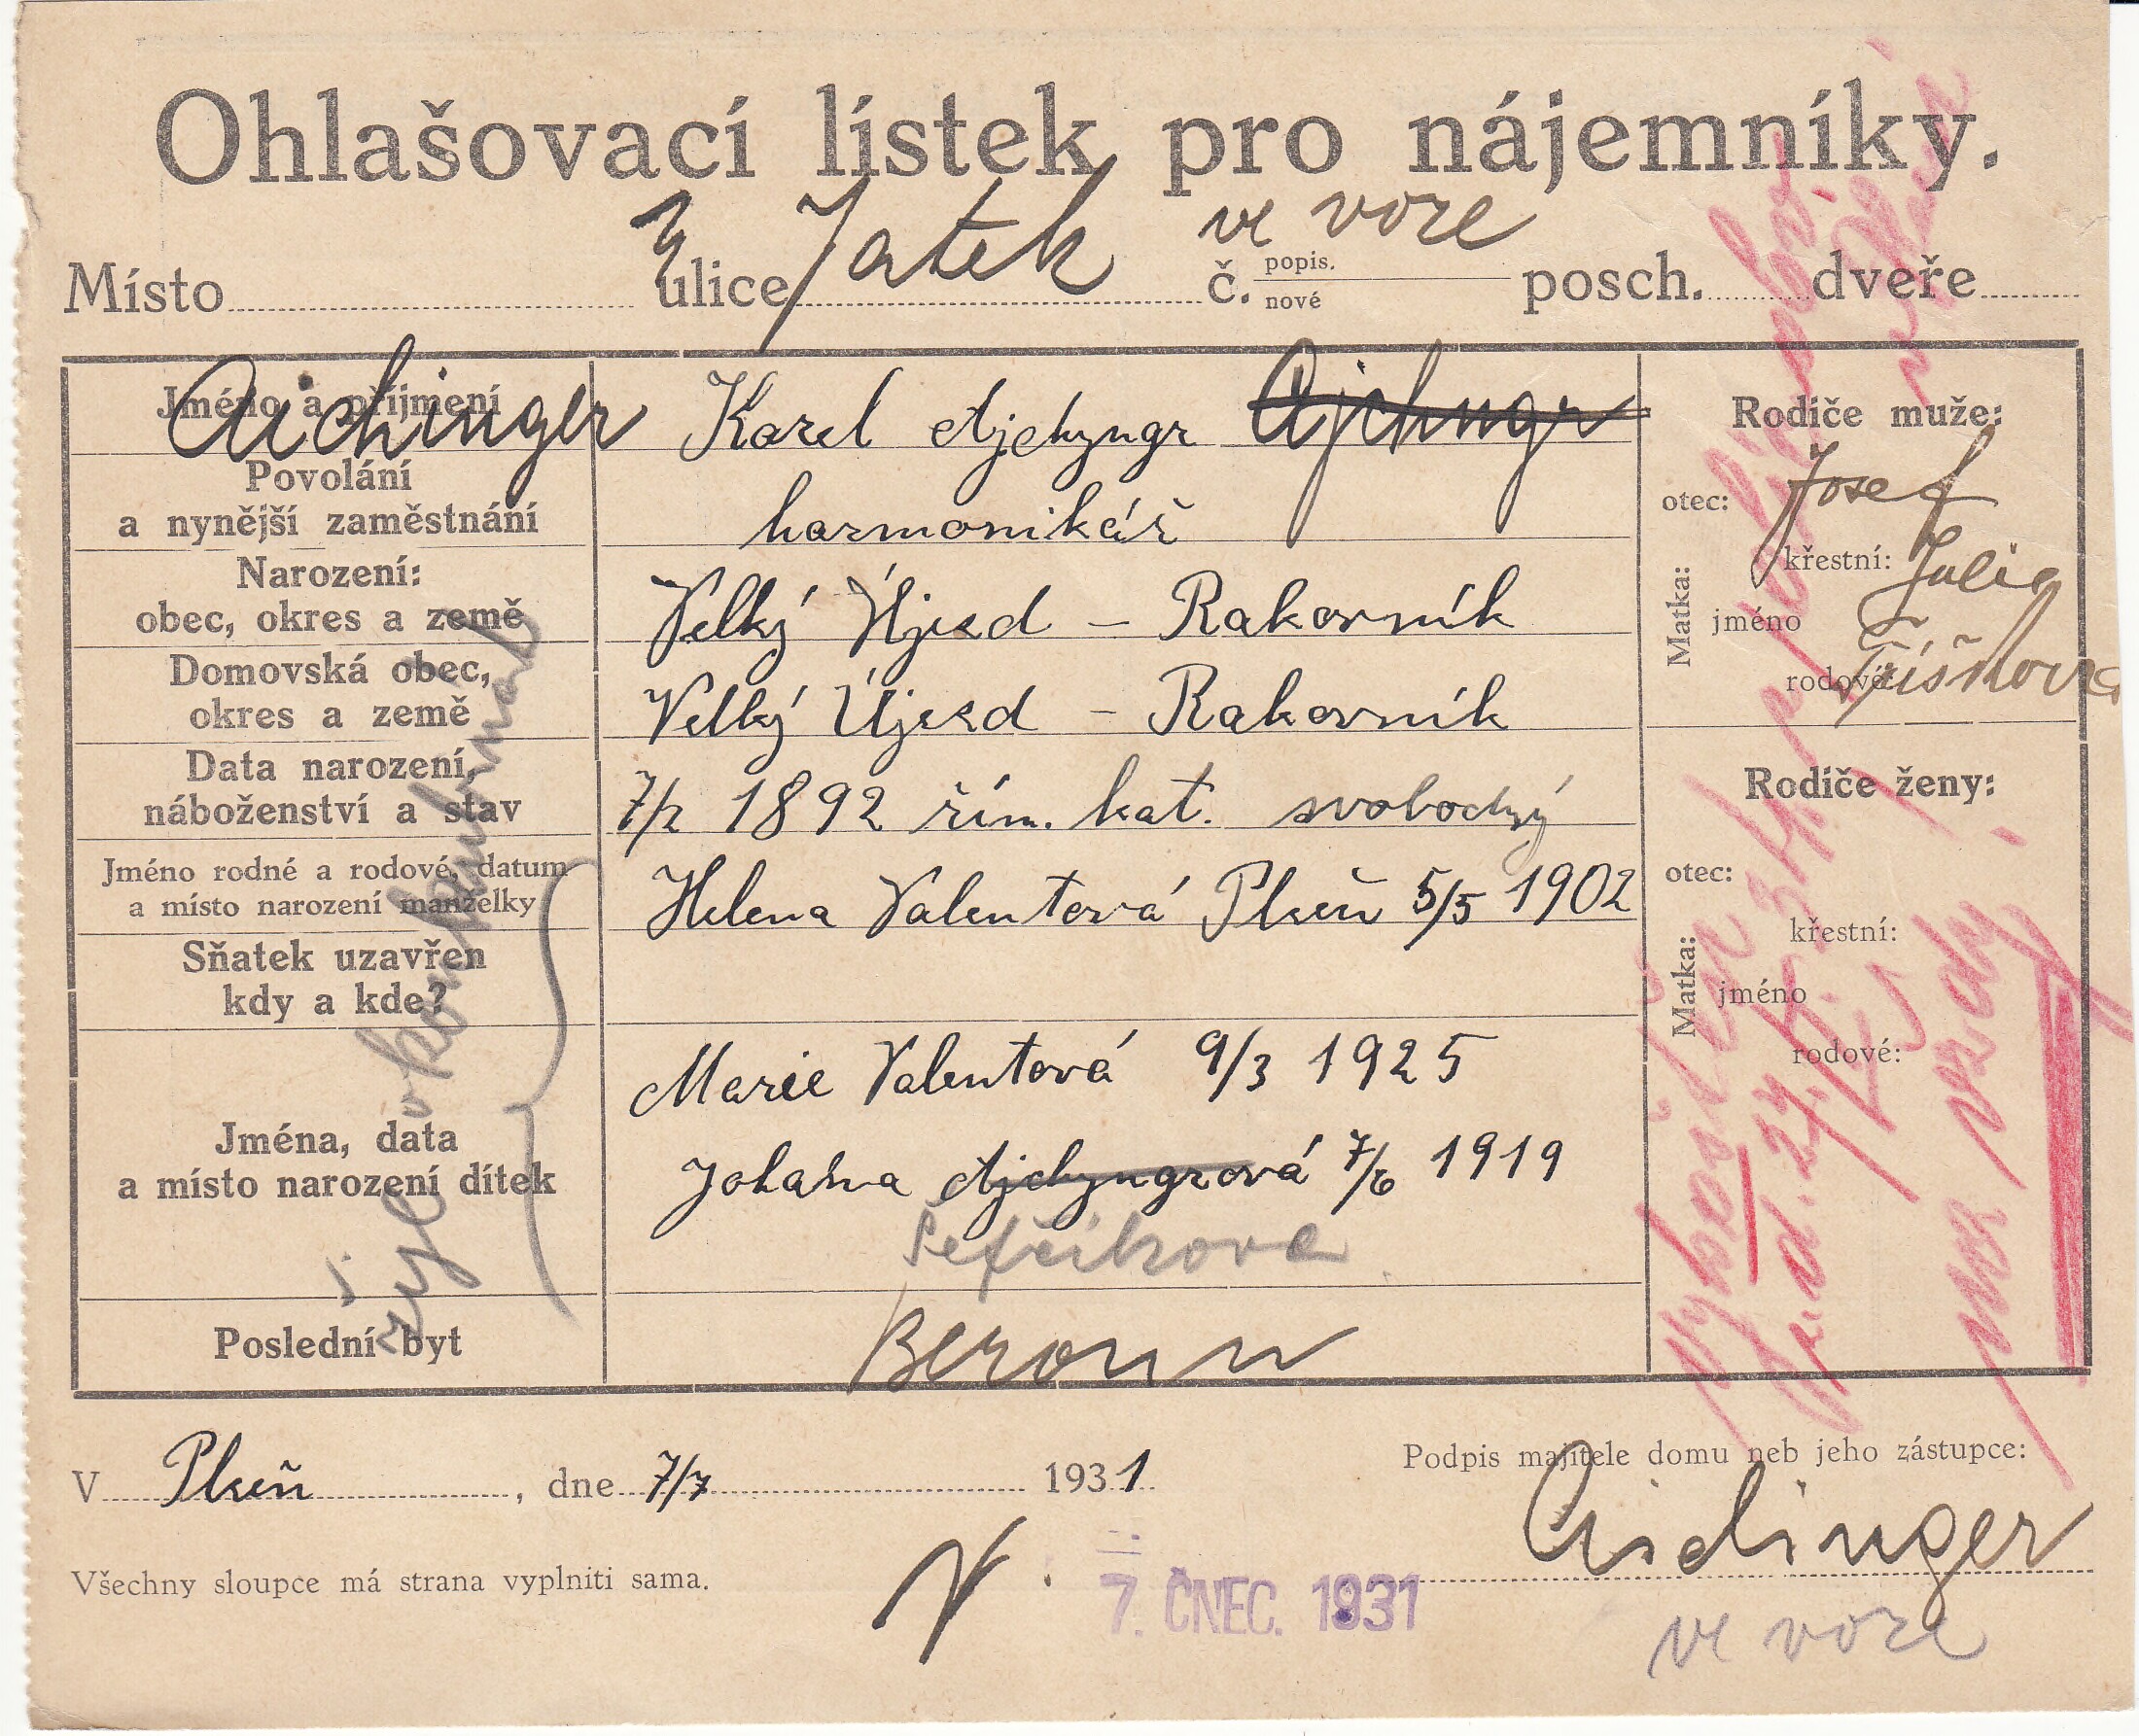 Ohlašovací lístek pro nájemníky.
Místo ulice U Jatek č. popis. nové ve voze posch. dveře
Jméno a příjmení Aichinger Karel Ajchyngr Ajchngr
Povolání
a nynější zaměstnání harmonikář
Narození:
obec, okres a země Velký Újezd – Rakovník
Domovská obec,
okres a země Velký Újezd – Rakovník
Data narození,
náboženství a stav 7/2 1892 řím. kat. svobodný
Jméno rodné a rodové, datum
a místo narození manželky Helena Valentová Plzeň 5/5 1902
Sňatek uzavřen
kdy a kde?
Jména, data
a místo narození dítek
Marie Valentová 9/3 1925
Johana Ajchyngrová 7/6 1919
Šefčíkova
Poslední byt Beroun
žijí v konkubinatu
Rodiče muže:
otec: Josef
Matka: jméno
křestní: Julie
rodové:
Rodiče ženy:
otec:
Matka: jméno
křestní:
rodové:
V Plzeň, dne 7/7 1931
Podpis majitele domu neb jeho zástupce:
Aichinger
Všechny sloupce má strana vyplniti sama.
7. ČNEC. 1931
ve voze